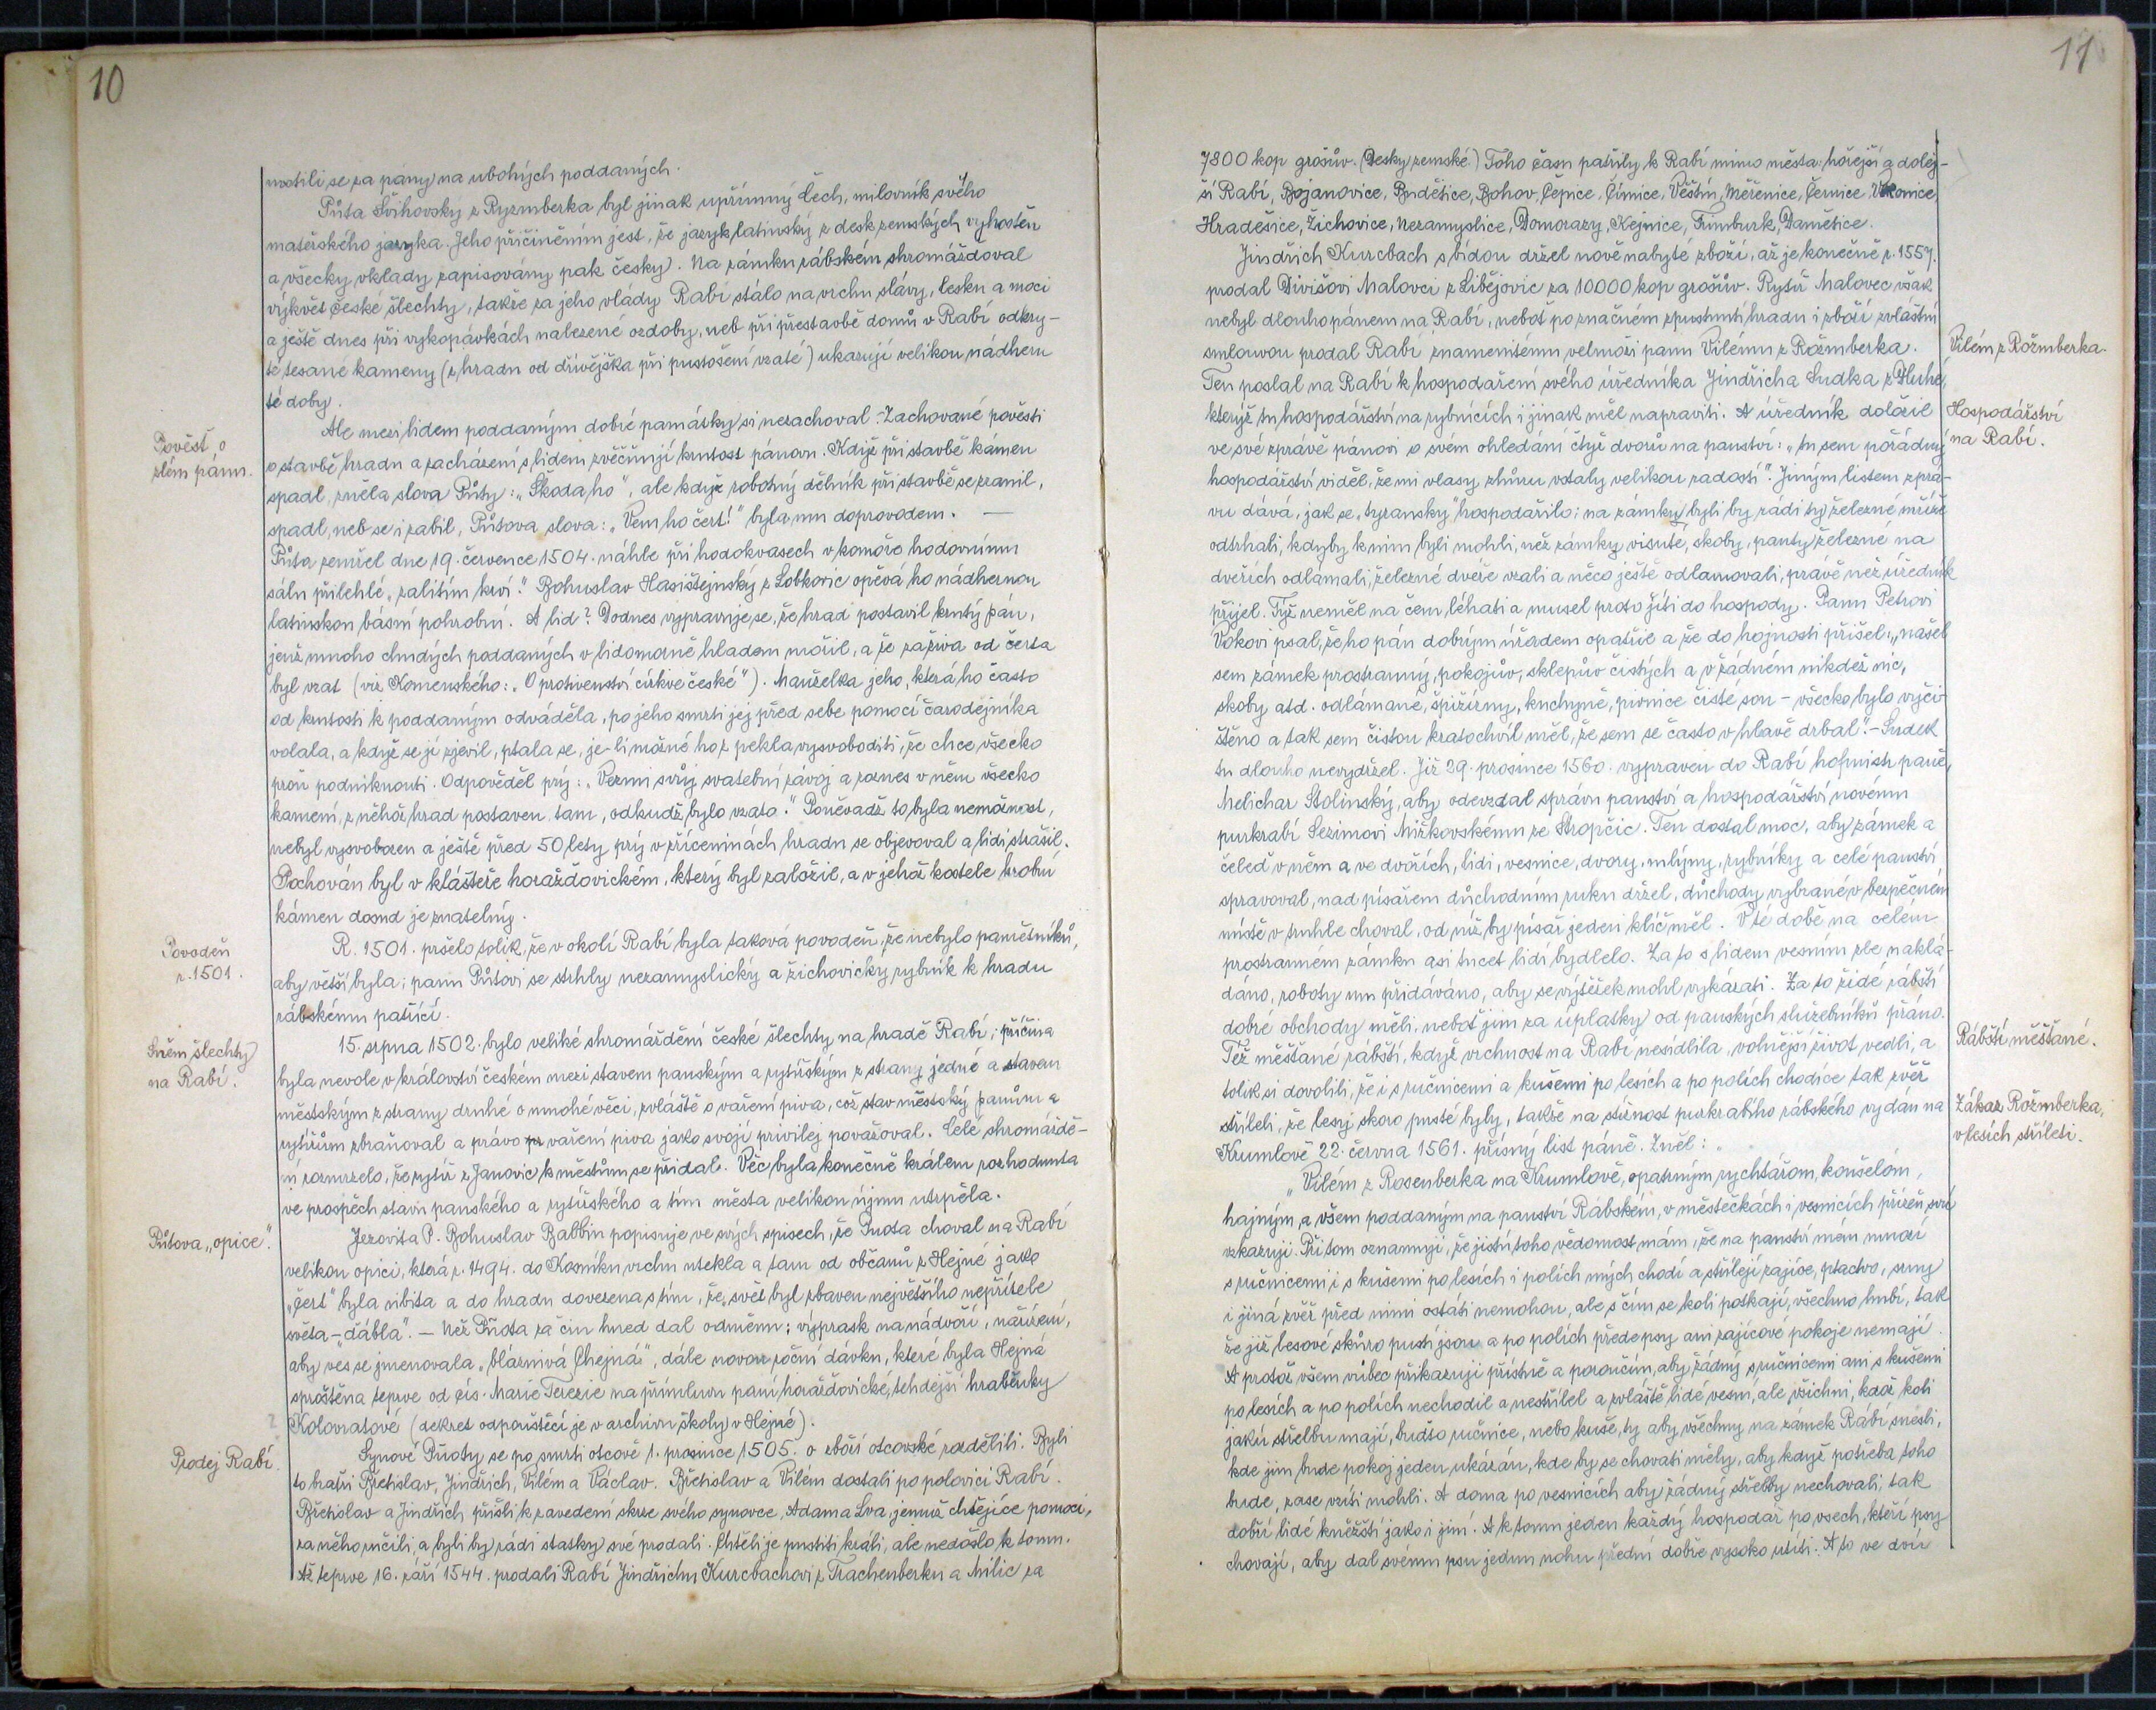 10
mstili se za pány na ubohých poddaných.
Půta Švihovský z Ryzmberka byl jinak upřímný Čech, milovník svého
mateřského jazyka. Jeho přičiněním jest, že jazyk latinský z desk zemských vyhoštěn
a všecky vklady zapisovány pak česky. Na zámku rábském shromážďoval
výkvět české šlechty, takže za jeho vlády Rabí stálo na vrchu slávy, lesku a moci
a ještě dnes při vykopávkách nalezené ozdoby, neb při přestavbě domů v Rabí odkry-
té tesané kameny (z hradu od dřívějška při pustošení vzaté) ukazují velikou nádheru
té doby.
Ale mezi lidem poddaným dobré památky si nezachoval. Zachované pověsti
Pověst o
zlém pánu.
o stavbě hradu a zacházení s lidem zvěčňují krutost pánovu. Když při stavbě kámen
spadl, zněla slova Půty: „Škoda ho", ale když robotný dělník při stavbě se zranil,
spadl, neb se i zabil, Půtova slova: „Vem ho čert!" byla mu doprovodem. —
Půta zemřel dne 19. července 1504. náhle při hodokvasech v komoře hodovnímu
sálu přilehlé „zalitím krví." Bohuslav Hasištejnský z Lobkovic opěvá ho nádhernou
latinskou básní pohrobní. A lid? Dodnes vypravuje se, že hrad postavil krutý pán,
jenž mnoho chudých poddaných v hladomorně hladem mořil, a že zaživa od čerta
byl vzat (viz Komenského: „O protivenství církve české"). Manželka jeho, která ho často
od krutosti k poddaným odváděla, po jeho smrti jej před sebe pomocí čarodějníka
volala, a když se jí zjevil, ptala se, je-li možné ho z pekla vysvoboditi, že chce všecko
proň podniknouti. Odpověděl prý: „Vezmi svůj svatební závoj a roznes v něm všecko
kamení, z něhož hrad postaven, tam, odkudž bylo vzato." Poněvadž to byla nemožnost,
nebyl vysvobozen a ještě před 50 lety prý v zříceninách hradu se objevoval a lidi strašil.
Pochován byl v klášteře horažďovickém, který byl založil, a v jehož kostele hrobní
kámen dosud je znatelný.
Povodeň
r. 1501.
R. 1501. pršelo tolik, že v okolí Rabí byla taková povodeň, že nebylo pamětníků,
aby větší byla; panu Půtovi se strhly nezamyslický a žichovický rybník k hradu
rábskému patřící.
Sněm šlechty
na Rabí.
15. srpna 1502. bylo veliké shromáždění české šlechty na hradě Rabí; příčina
byla nevole v království českém mezi stavem panským a rytířským z strany jedné a stavem
městským z strany druhé o mnohé věci, zvláště o vaření piva, což stav městský pánům a
rytířům zbraňoval a právo vaření piva jako svojí privilej považoval. Celé shromáždě-
ní rozmrzelo, že rytíř z Janovic k městům se přidal. Věc byla konečně králem rozhodnuta
ve prospěch stavu panského a rytířského a tím města velikou újmu utrpěla.
Půtova „opice".
Jezovita P. Bohuslav Babbin popisuje ve svých spisech, že Puota choval na Rabí
velikou opici, která r. 1494. do Kosmíku vrchu utekla a tam od občanů z Hejné jako
„čert" byla ubita a do hradu dovezena s tím, že „svět byl zbaven největšího nepřítele
světa – ďábla". — Než Půota za čin hned dal odměnu; výprask na nádvoří, nařízení,
aby ves se jmenovala „bláznivá Chejná", dále novou roční dávku, které byla Hejná
sproštěna teprve od cís. Marie Terezie na přímluvu paní horažďovické, tehdejší hraběnky
Kolovratové (dekret odpouštěcí je v archivu školy v Hejné).
Prodej Rabí.
Synové Půoty se po smrti otcově 1. prosince 1505. o zboží otcovské rozdělili. Byli
to bratři Břetislav, Jindřich, Vilém a Václav. Břetislav a Vilém dostali po polovici Rabí.
Břetislav a Jindřich přišli k zavedení skrze svého synovce, Adama Lva, jemuž chtějíce pomoci,
za něho ručili, a byli by rádi statky své prodali. Chtěli je pustiti králi, ale nedošlo k tomu.
Až teprve 16. září 1544. prodali Rabí Jindřichu Kurcbachovi z Trachenberku a Milic za
11
7800 kop grošův. (Desky zemské) Toho času patřily k Rabí mimo města: hořejší a dolej-
ší Rabí, Bojanovice, Budětice, Bohov, Čepice, Čimice, Věštín, Měčenice, Černice
Hradešice, Žichovice, Nezamyslice, Domorazy, Kejnice, Frimburk, Damětice.
Jindřich Kurcbach s bídou držel nově nabyté zboží, až je konečně r. 1557.
prodal Divišovi Malovci z Libějovic za 10000 kop grošův. Rytíř Malovec však
nebyl dlouho pánem na Rabí, neboť po značném zpustnutí hradu i zboží zvláštní
smlouvou prodal Rabí znamenitému velmoži panu Vilému z Rožmberka.
Vilém z Rožmberka.
Ten poslal na Rabí k hospodaření svého úředníka Jindřicha Ludka z Dluhé,
kterýž tu hospodářství na rybnících i jinak měl napraviti. A úředník doložil
Hospodářství
na Rabí.
ve své zprávě pánovi o svém ohledání čtyř dvorů na panství: „tu sem pořádný
hospodářství viděl, že mi vlasy zhůru vstaly velikou radostí". Jiným listem zprá-
vu dává, jak se „tyransky" hospodařilo: na zámku byli by rádi ty železné mříže
odtrhali, kdyby k nim byli mohli, než zámky visuté, skoby, panty železné na
dveřích odlámali, železné dveře vzali a něco ještě odlamovali, právě než úředník
přijel. Týž neměl na čem léhati a musel proto jíti do hospody. Panu Petrovi
Vokovi psal, že ho pán dobrým úřadem opatřil a že do hojnosti přišel: „našel
sem zámek prostranný, pokojův, sklepův čistých a v žádném nikdež nic,
skoby atd. odlámané, špižírny, kuchyně, pivnice čisté sou – všecko bylo vyči-
štěno a tak sem čistou kratochvíl měl, že sem se často v hlavě drbal". – Ludek
tu dlouho nevydržel. Již 29. prosince 1560. vypraven do Rabí hofmistr páně,
Melichar Stolinský, aby odevzdal správu panství a hospodářství novému
purkrabí Sezimovi Mižkovskému ze Stropčic. Ten dostal moc, aby zámek a
čeleď v něm a ve dvořích, lidi, vesnice, dvory, mlýny, rybníky a celé panství
spravoval, nad písařem důchodním ruku držel, důchody vybrané v bezpečném
místě v truhle choval, od níž by písař jeden klíč měl. V té době na celém
prostranném zámku asi tucet lidí bydlelo. Za to s lidem vesním zle naklá-
dáno, roboty mu přidáváno, aby se výtěžek mohl vykázati. Za to židé rábští
dobré obchody měli, neboť jim za úplatky od panských služebníků přáno.
Též měšťané rábští, když vrchnost na Rabí nesídlila, volnější život vedli, a
Rábští měšťané.
tolik si dovolili, že i s ručnicemi a kušemi po lesích a po polích chodíce tak zvěř
stříleli, že lesy skoro pusté byly, takže na stížnost purkrabího rábského vydán na
Zákaz Rožmberka,
v lesích stříleti.
Krumlově 22. června 1561. přísný list páně. Zněl:
„Vilém z Rosenberka na Krumlově, opatrným rychtářom, konšelóm,
hajným a všem poddaným na panství Rábském, v městečkách i vesnicích přízeň svú
vzkazuji. Při tom oznamuji, že jistú toho vědomost mám, že na panství mém mnozí
s ručnicemi i s kušemi po lesích i polích mých chodí a střílejí zajíce, ptactvo, srny
i jiná zvěř před nimi ostáti nemohou, ale s čím se koli potkají, všechno hubí, tak
že již lesové skůro pustí jsou a po polích přede psy ani zajícové pokoje nemají.
A protož všem vůbec přikazuji přísně a poroučím, aby žádný s ručnicemi ani s kušemi
po lesích a po polích nechodil a nestřílel a zvláště lidé vesní, ale všichni, kdož koli
jakú střelbu mají, buďto ručnice, nebo kuše, ty aby všechny na zámek Rábí snesli,
kde jim bude pokoj jeden ukázán, kde by se chovati měly, aby když potřeba toho
bude, zase vzíti mohli. A doma po vesnicích aby žádný střelby nechovali, tak
dobří lidé kněžští jako i jiní. A k tomu jeden každý hospodář po vsech, kteří psy
chovají, aby dal svému psu jednu nohu přední dobře vysoko utíti. A to ve dvú